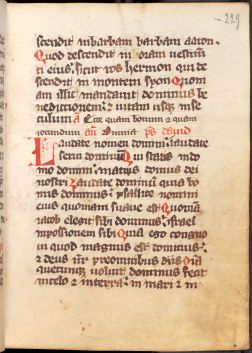 229
scendit in barbam barbam aaron.
Quod descendit in oram vestim̄
ti eius, sicut ros hermon qui de
scendit in montem syon Quom
am illic mandauit dominus be
nedictionem & uitam usq; in se
culum A Ecce quam bonum & quam
iocundum añ Omnia ps̄ dauid
Laudate nomen domini, laudate
serui dominū Qui statis in do
mo domini
nostri Laudate dominū quia bo
nus dominus psallite nomini
eius quoniam suaue est Quoniā
iacob elegit sibi dominus israel
in possessionem sibi Quia ego cogno
ui quod magnus est dominus
& deus nr̄ pre omnibus diis Oīa
quecunq; uoluit dominus fecit
in celo & in terra in mari & in